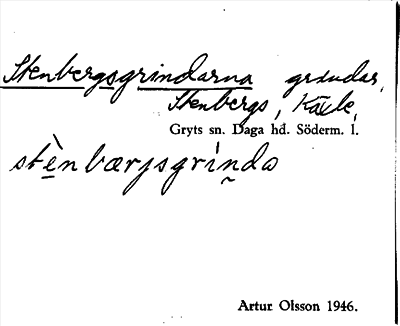 Stenbergsgrindarna grindar,
Stenbergs, Käxle,
Gryts sn. Daga hd. Söderm. l.
stènbærjsgrìnda
Artur Olsson 1946.